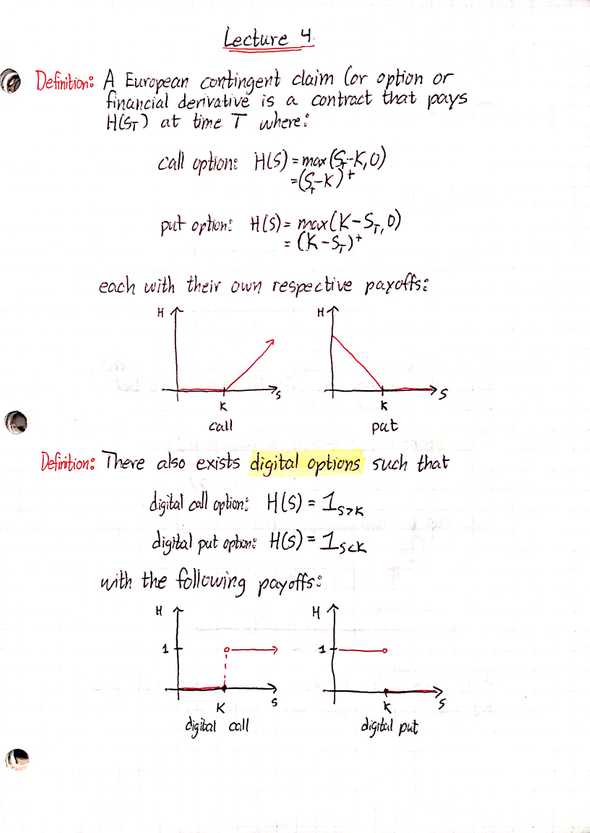 Lecture 4
Definition: A European contingent claim (or option or
financial derivative is a contract that pays
H(S_T) at time T where:
call option: H(S) = max(S_T-K,0)
=(S_T-K)^+
put option: H(S) = max(K-S_T,0)
= (K-S_T)^+
each with their own respective payoffs:
H H
S S
K K
call put
Definition: There also exists digital options such that
digital call option: H(S) = 1_{S>K}
digital put option: H(S) = 1_{S<K}
with the following payoffs:
H H
1 1
S S
K K
digital call digital put